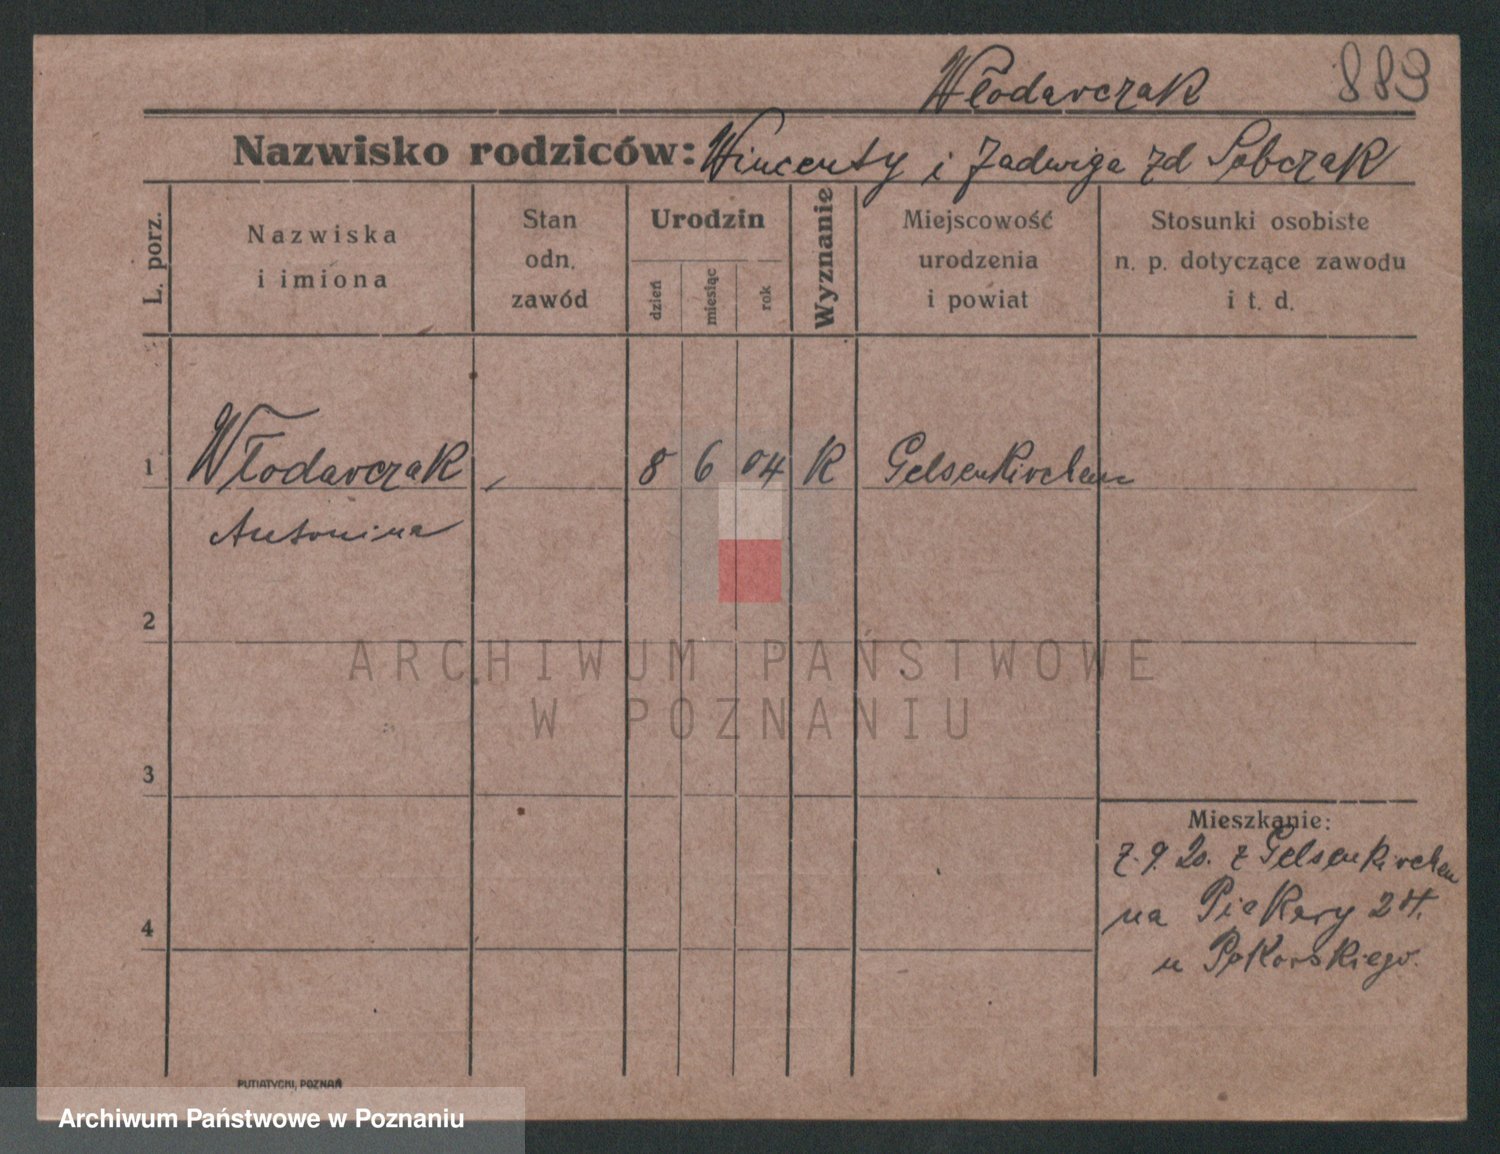 Włodarczak 889
Nazwisko rodziców: Wincenty i Jadwiga zd Sobczak
L. porz.
Nazwiska
i imiona
Stan
odn.
zawód
Urodzin
dzień
miesiąc
rok
Wyznanie
Miejscowość
urodzenia
i powiat
Stosunki osobiste
n. p. dotyczące zawodu
i t. d.
1 Włodarczak - 8 6 04 K Gelsenkirchen
Antonina
2
ARCHIWUM PAŃSTWOWE
W POZNANIU
3
Mieszkanie:
7.9.20. z Gelsenkirchen
na Piekary 24.
u Pokorskiego.
4
PUTIATYCKI, POZNAŃ
Archiwum Państwowe w Poznaniu